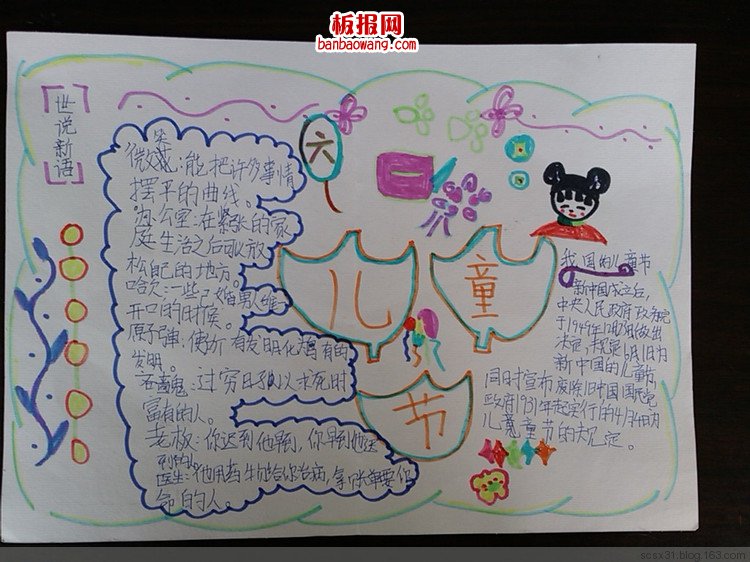 板报网
banbaowang.com
世说新语
六一
儿童节
微笑:能把许多事情
摆平的曲线。
办公室:在紧张的家
庭生活之后可以放
松自己的地方。
哈欠:一些已婚男人唯一
开口的时候。
原子弹,使所有发明化
发明。
吝啬鬼:过穷日子以求死时
富有的人。
老板:你迟到他早到,你早到他迟
到的人
医生:他用药物给你治病,拿账单要你
命的人。
我国的儿童节
新中国成立后,
中央人民政府政务院
于1949年12月做出
决定,规定6月1日为
新中国的儿童节,
同时宣布废除旧中国国民党
政府1931年起实行的4月4日为
儿童节的决定。
scsx31.blog.163.com